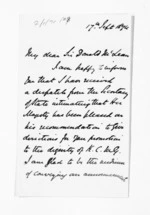 17th Sept 1874
My dear Sir Donald McLean
I am happy to inform
you that I have received
a despatch from the Secretary
of State intimating that Her
Majesty has been pleased on
his recommendation to give
directions for your promotion
to the dignity of K.C.M.G.
I am glad to be the medium
of conveying an announcement